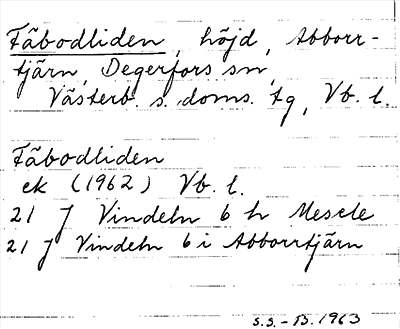 Fäbodliden, höjd, Abborr-
tjärn, Degerfors sn,
Västerb. s. doms. tg, Vb. l.
Fäbodliden
ek (1962) Vb. l.
21 J Vindeln 6 h Mesele
21 J Vindeln 6 i Abborrtjärn
S.S.-B. 1963